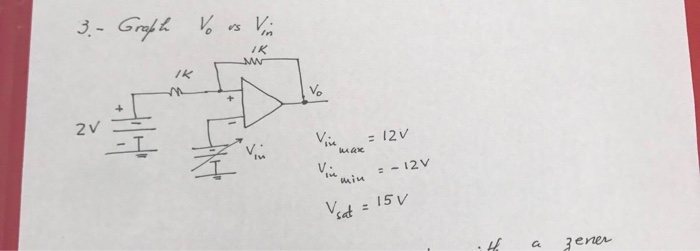 3.- Graph Vo vs Vin
1K
1K
+
Vo
+
2V
-
-
Vin
Vin max = 12V
Vin min = -12V
Vsat = 15V
a zener